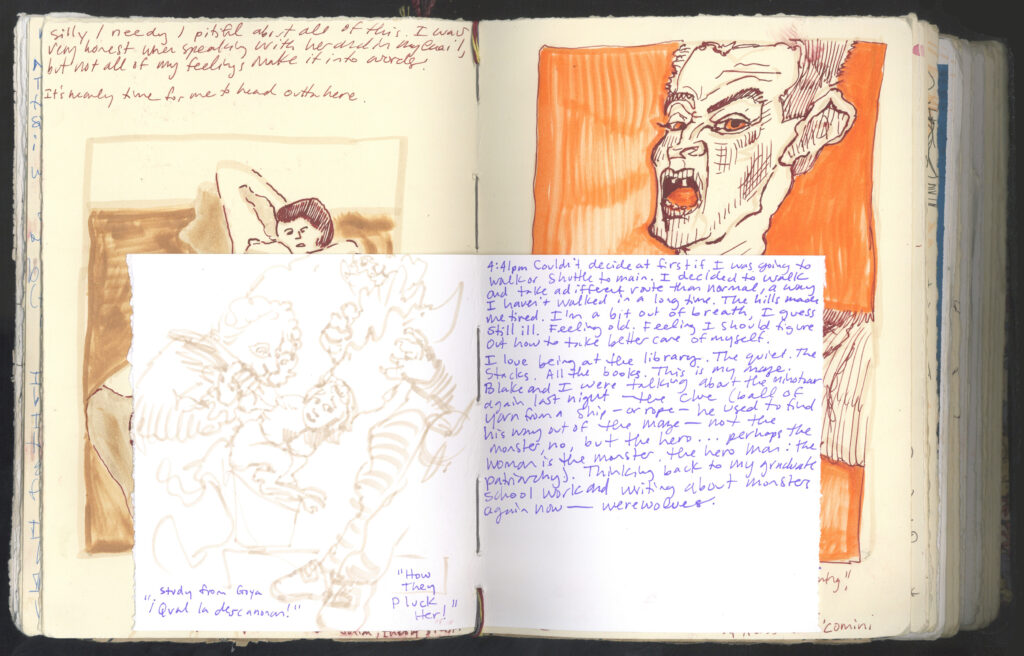 silly / needy / pitiful about all of this. I was
very honest when speaking with her and in my email,
but not all of my feelings make it into words.
It's nearly time for me to head outta here.
study from Goya
"¡Qual la descañonan!"
"How
They
Pluck
Her!"
4:41pm Couldn't decide at first if I was going to
walk or shuttle to main. I decided to walk
and take a different route than normal, a way
I haven't walked in a long time. The hills made
me tired. I'm a bit out of breath, I guess
still ill. Feeling old. Feeling I should figure
out how to take better care of myself.
I love being at the library. The quiet. The
Stacks. All the books. This is my maze.
Blake and I were talking about the minotaur
again last night — the clue (ball of
yarn from a ship — or rope — he used to find
his way out of the maze — not the
monster, no, but the hero... perhaps the
woman is the monster. the hero man: the
patriarchy). Thinking back to my graduate
school work and writing about monsters
again now — werewolves.
comini